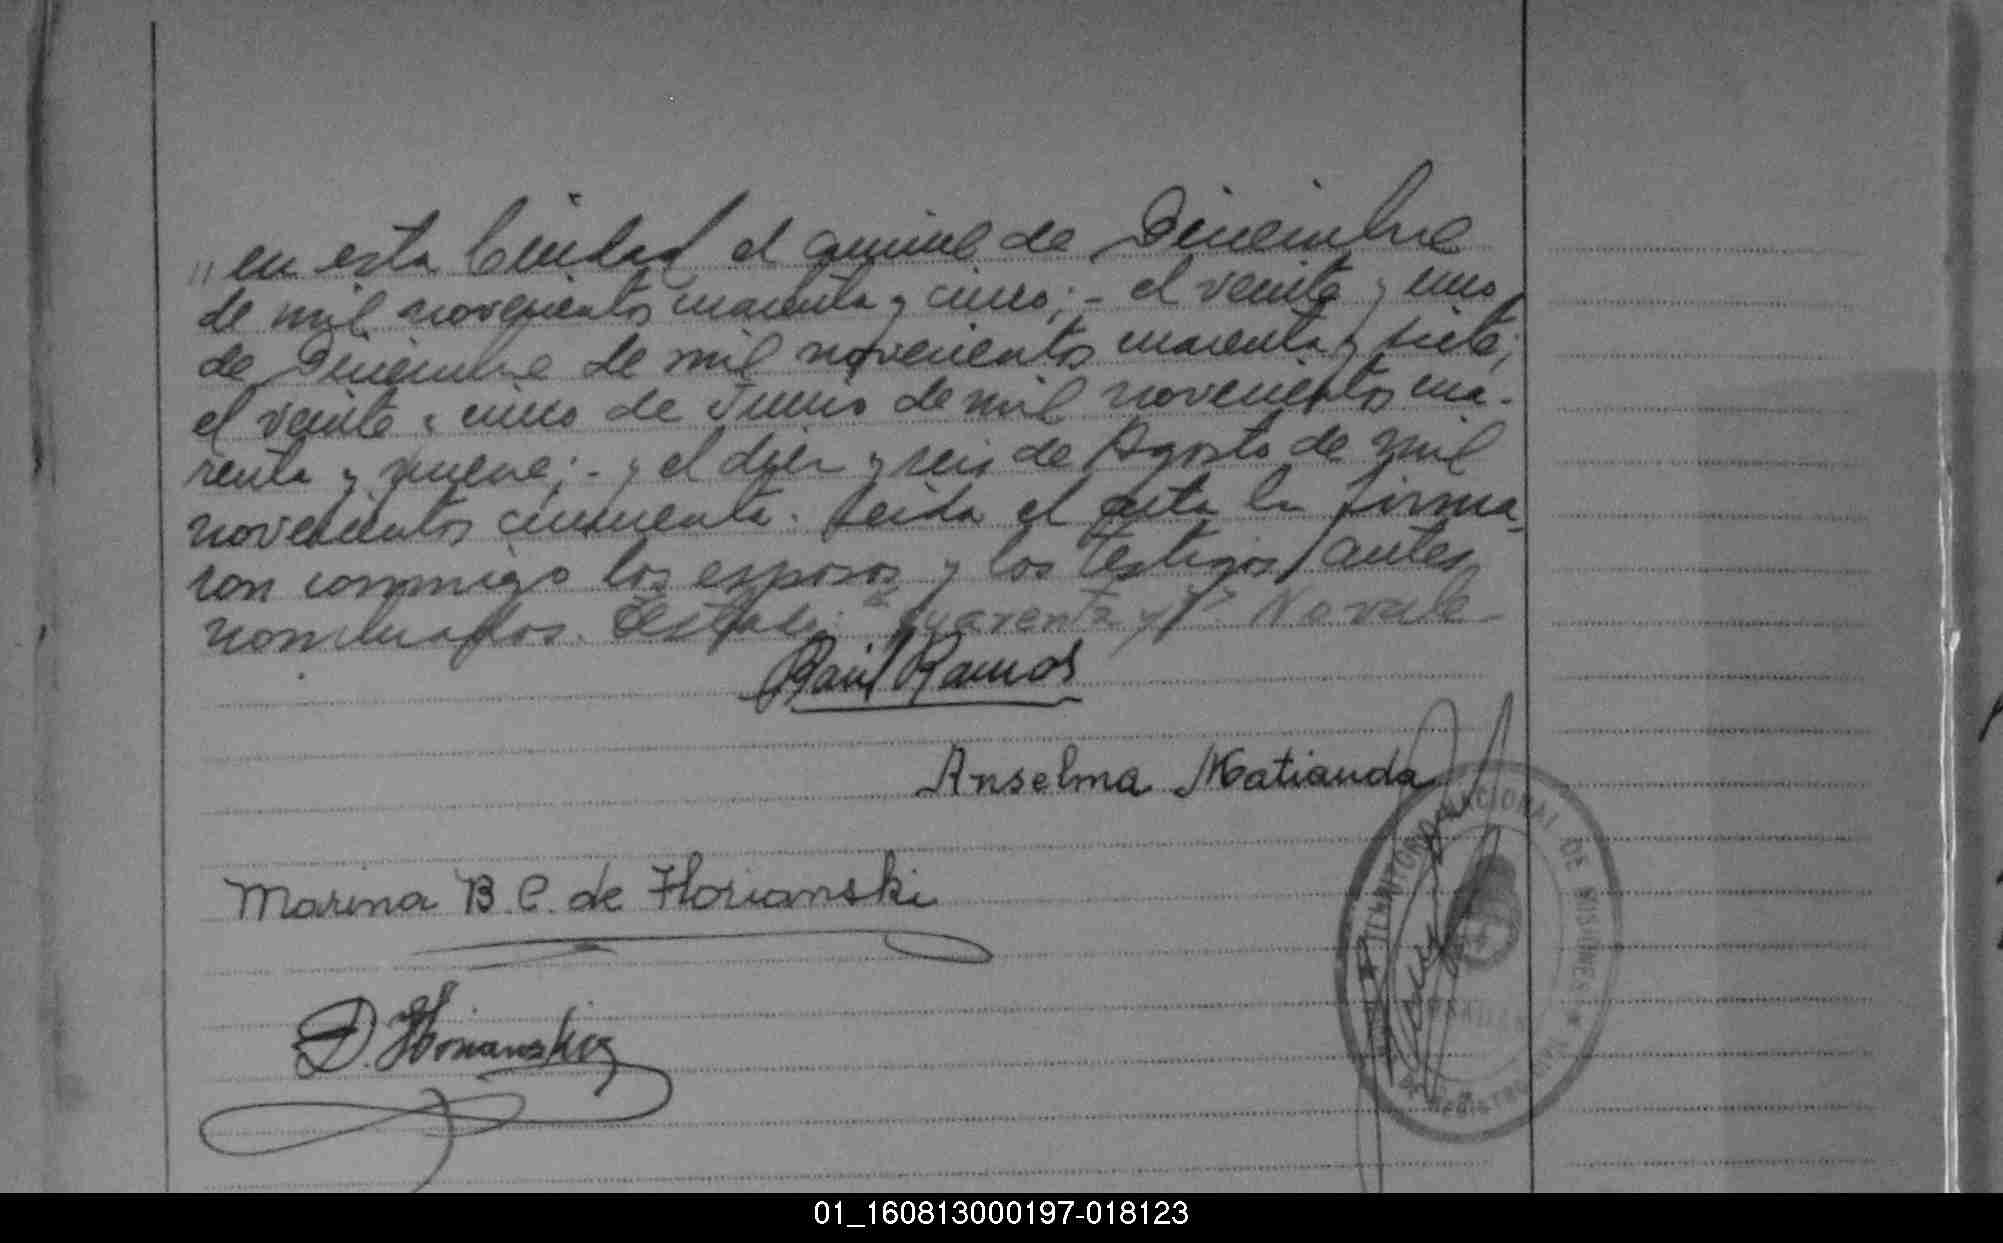 „ en esta Ciudad el quince de Diciembre
de mil novecientos cuarenta y cinco; - el veinte y uno
de Diciembre de mil novecientos cuarenta y siete;
el veinte y cinco de Junio de mil novecientos cua-
renta y nueve; - y el diez y seis de Agosto de mil
novecientos cincuenta. Leida el acta la firma-
ron conmigo los esposos y los testigos antes
nombrados. Testado: "cuarenta y" No vale
Raúl Ramos
Anselma Matiauda
Marina B. C. de Florianski
D. Florianski
TERRITORIO NACIONAL DE MISIONES
POSADAS
REGISTRO
01_160813000197-018123